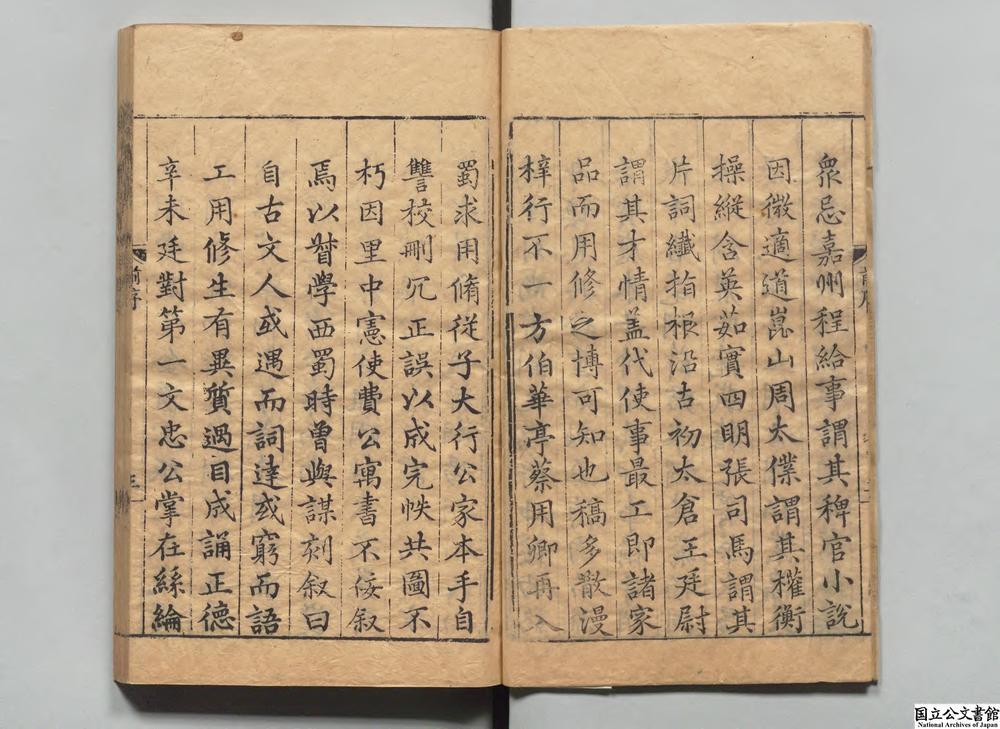 衆忌嘉州程給事謂其稗官小說
因微適道崑山周太僕謂其權衡
操縱含英茹實四明張司馬謂其
片詞纖指根沿古初太倉王廷尉
謂其才情盖代使事最工即諸家
品而用修之博可知也稿多散漫
梓行不一方伯華亭蔡用卿再入
蜀求用脩從子大行公家本手自
讐校刪冗正誤以成完帙共圖不
朽因里中憲使費公寓書不佞叙
焉以督學西蜀時曾與謀刻叙曰
自古文人或遇而詞達或窮而語
工用修生有異質過目成誦正德
辛未廷對第一文忠公掌在絲綸
前序
三
国立公文書館
National Archives of Japan